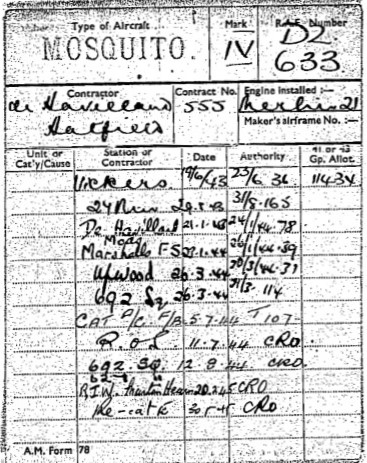 Type of Aircraft Mark R.A.F. Number
MOSQUITO. IV DZ
633
Contractor Contract No. Engine installed :—
de Havilland 555 Merlin 21
Hatfield Maker's airframe No. :—
Unit or Cat'y/Cause Station or Contractor Date Authority 41 or 43 Gp. Allot.
Vickers 19/6/43 23/6 36 11434
24 31/8.165
De Havilland 21.1. 24/1/44.78
Mods
Marshalls FS .1.44 26/1/44.39
Upwood 26.3.44 31
692 Sq 26.3.44 114
CAT A/C F/B 5.7.44 T 107
R.O.S. 11.7.44 CRO
692. Sq. 12.8.44 CRO.
R.I.W. 20.2.45 CRO
Re-cat E CRO
A.M. Form 78